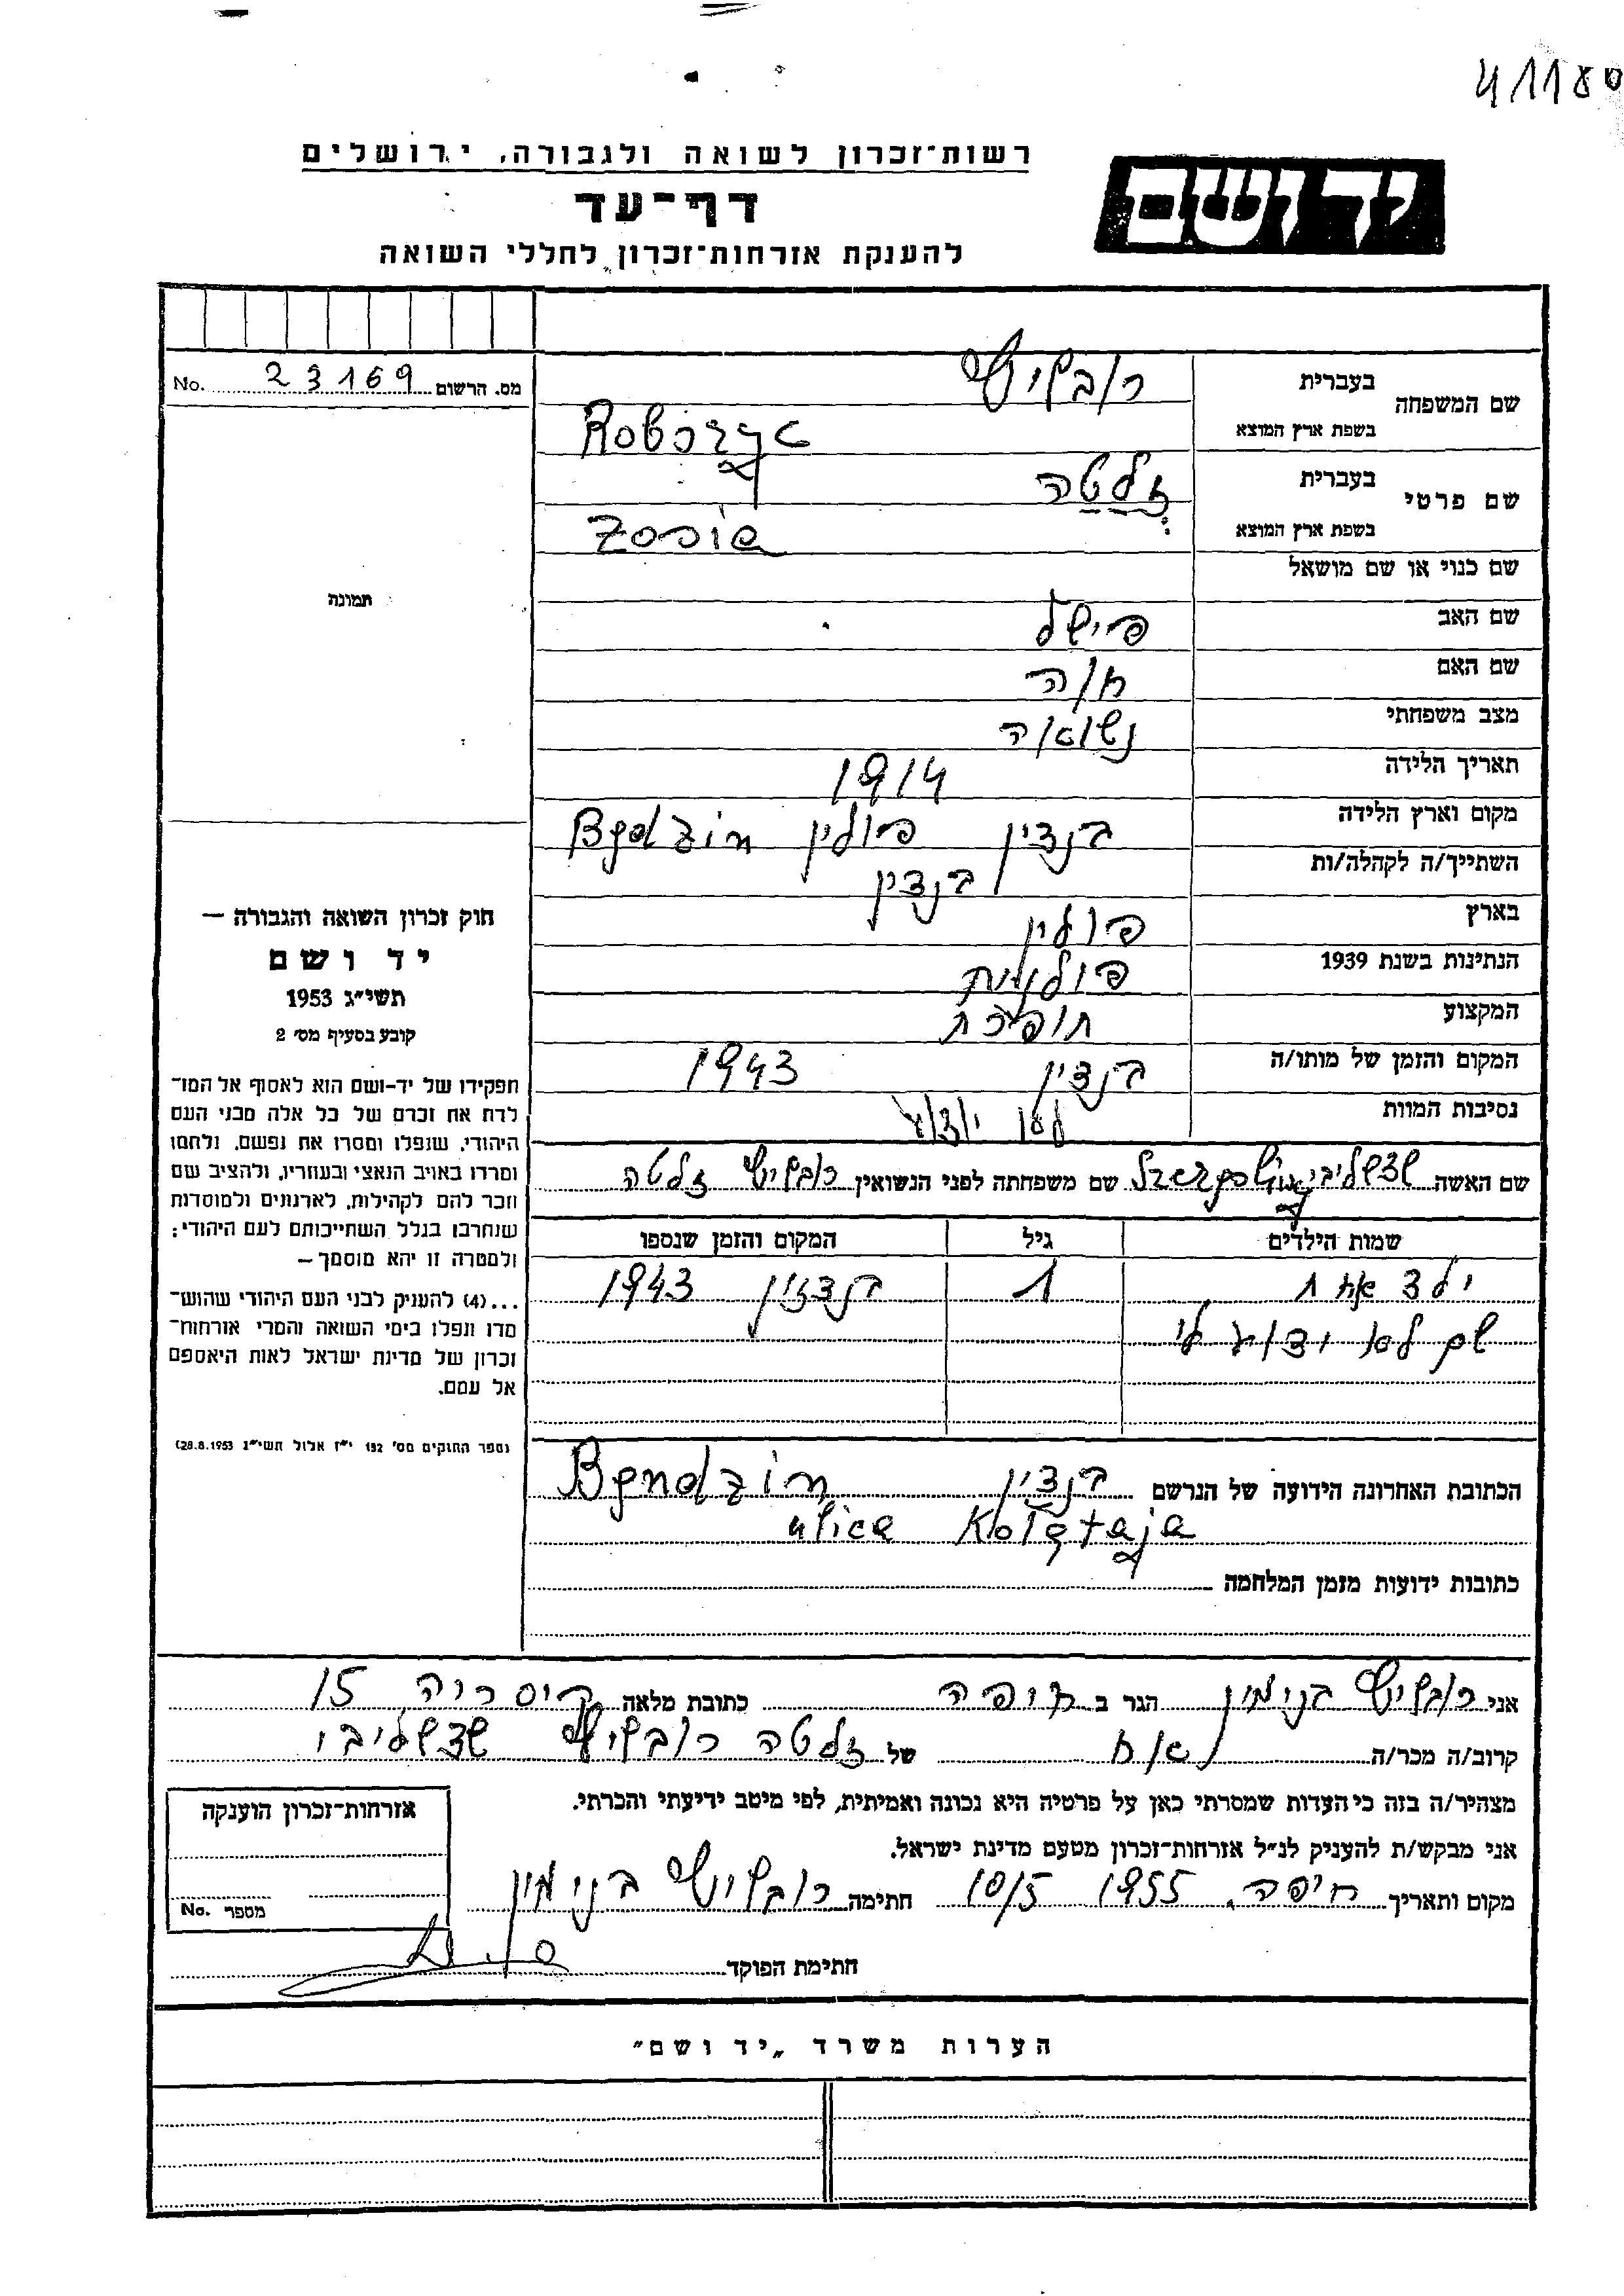 41180
רשות־זכרון לשואה ולגבורה, ירושלים
יד ושם
דף־עד
להענקת אזרחות־זכרון לחללי השואה
מס. הרשום 23169 No.
שם המשפחה
בעברית
בשפת ארץ המוצא
Roborzyc
שם פרטי
בעברית זלטה
בשפת ארץ המוצא Zosia
שם כנוי או שם מושאל
תמונה
שם האב פישל
שם האם חוה
מצב משפחתי נשואה
תאריך הלידה 1914
מקום וארץ הלידה בנדין פולין Będzin
השתייך/ה לקהלה/ות בנדין
בארץ פולין
הנתינות בשנת 1939 פולנית
המקצוע תופרת
המקום והזמן של מותו/ה בנדין 1943
נסיבות המוות לא ידוע
שם האשה שם משפחתה לפני הנשואין זלטה
שמות הילדים גיל המקום והזמן שנספו
ילד אחד 1 בנדזין 1943
שם לא ידוע לי
הכתובת האחרונה הידועה של הנרשם בנדין Bendzin
ulica Kołątaja
כתובות ידועות מזמן המלחמה
חוק זכרון השואה והגבורה —
יד ושם
תשי"ג 1953
קובע בסעיף מס׳ 2
תפקידו של יד-ושם הוא לאסוף אל המו־
לדת את זכרם של כל אלה מבני העם
היהודי, שנפלו ומסרו את נפשם, נלחמו
ומרדו באויב הנאצי ובעוזריו, ולהציב שם
וזכר להם לקהילות, לארגונים ולמוסדות
שנחרבו בגלל השתייכותם לעם היהודי;
ולמטרה זו יהא מוסמך —
...(4) להענק לבני העם היהודי שהוש־
מדו ונפלו בימי השואה והמרי אזרחות־
זכרון של מדינת ישראל לאות היאספם
אל עמם.
(ספר החוקים מס׳ 132 י"ז אלול תשי"ג 28.8.1953)
אני בנימין הגר ב חיפה כתובת מלאה קיסריה 15
קרוב/ה מכר/ה אח של זלטה
מצהיר/ה בזה כי העדות שמסרתי כאן על פרטיה היא נכונה ואמיתית, לפי מיטב ידיעתי והכרתי.
אני מבקש/ת להעניק לנ"ל אזרחות־זכרון מטעם מדינת ישראל.
מקום ותאריך חיפה, 1955 10/5 חתימה בנימין
חתימת הפוקד
אזרחות־זכרון הוענקה
מספר No.
הערות משרד „יד ושם"